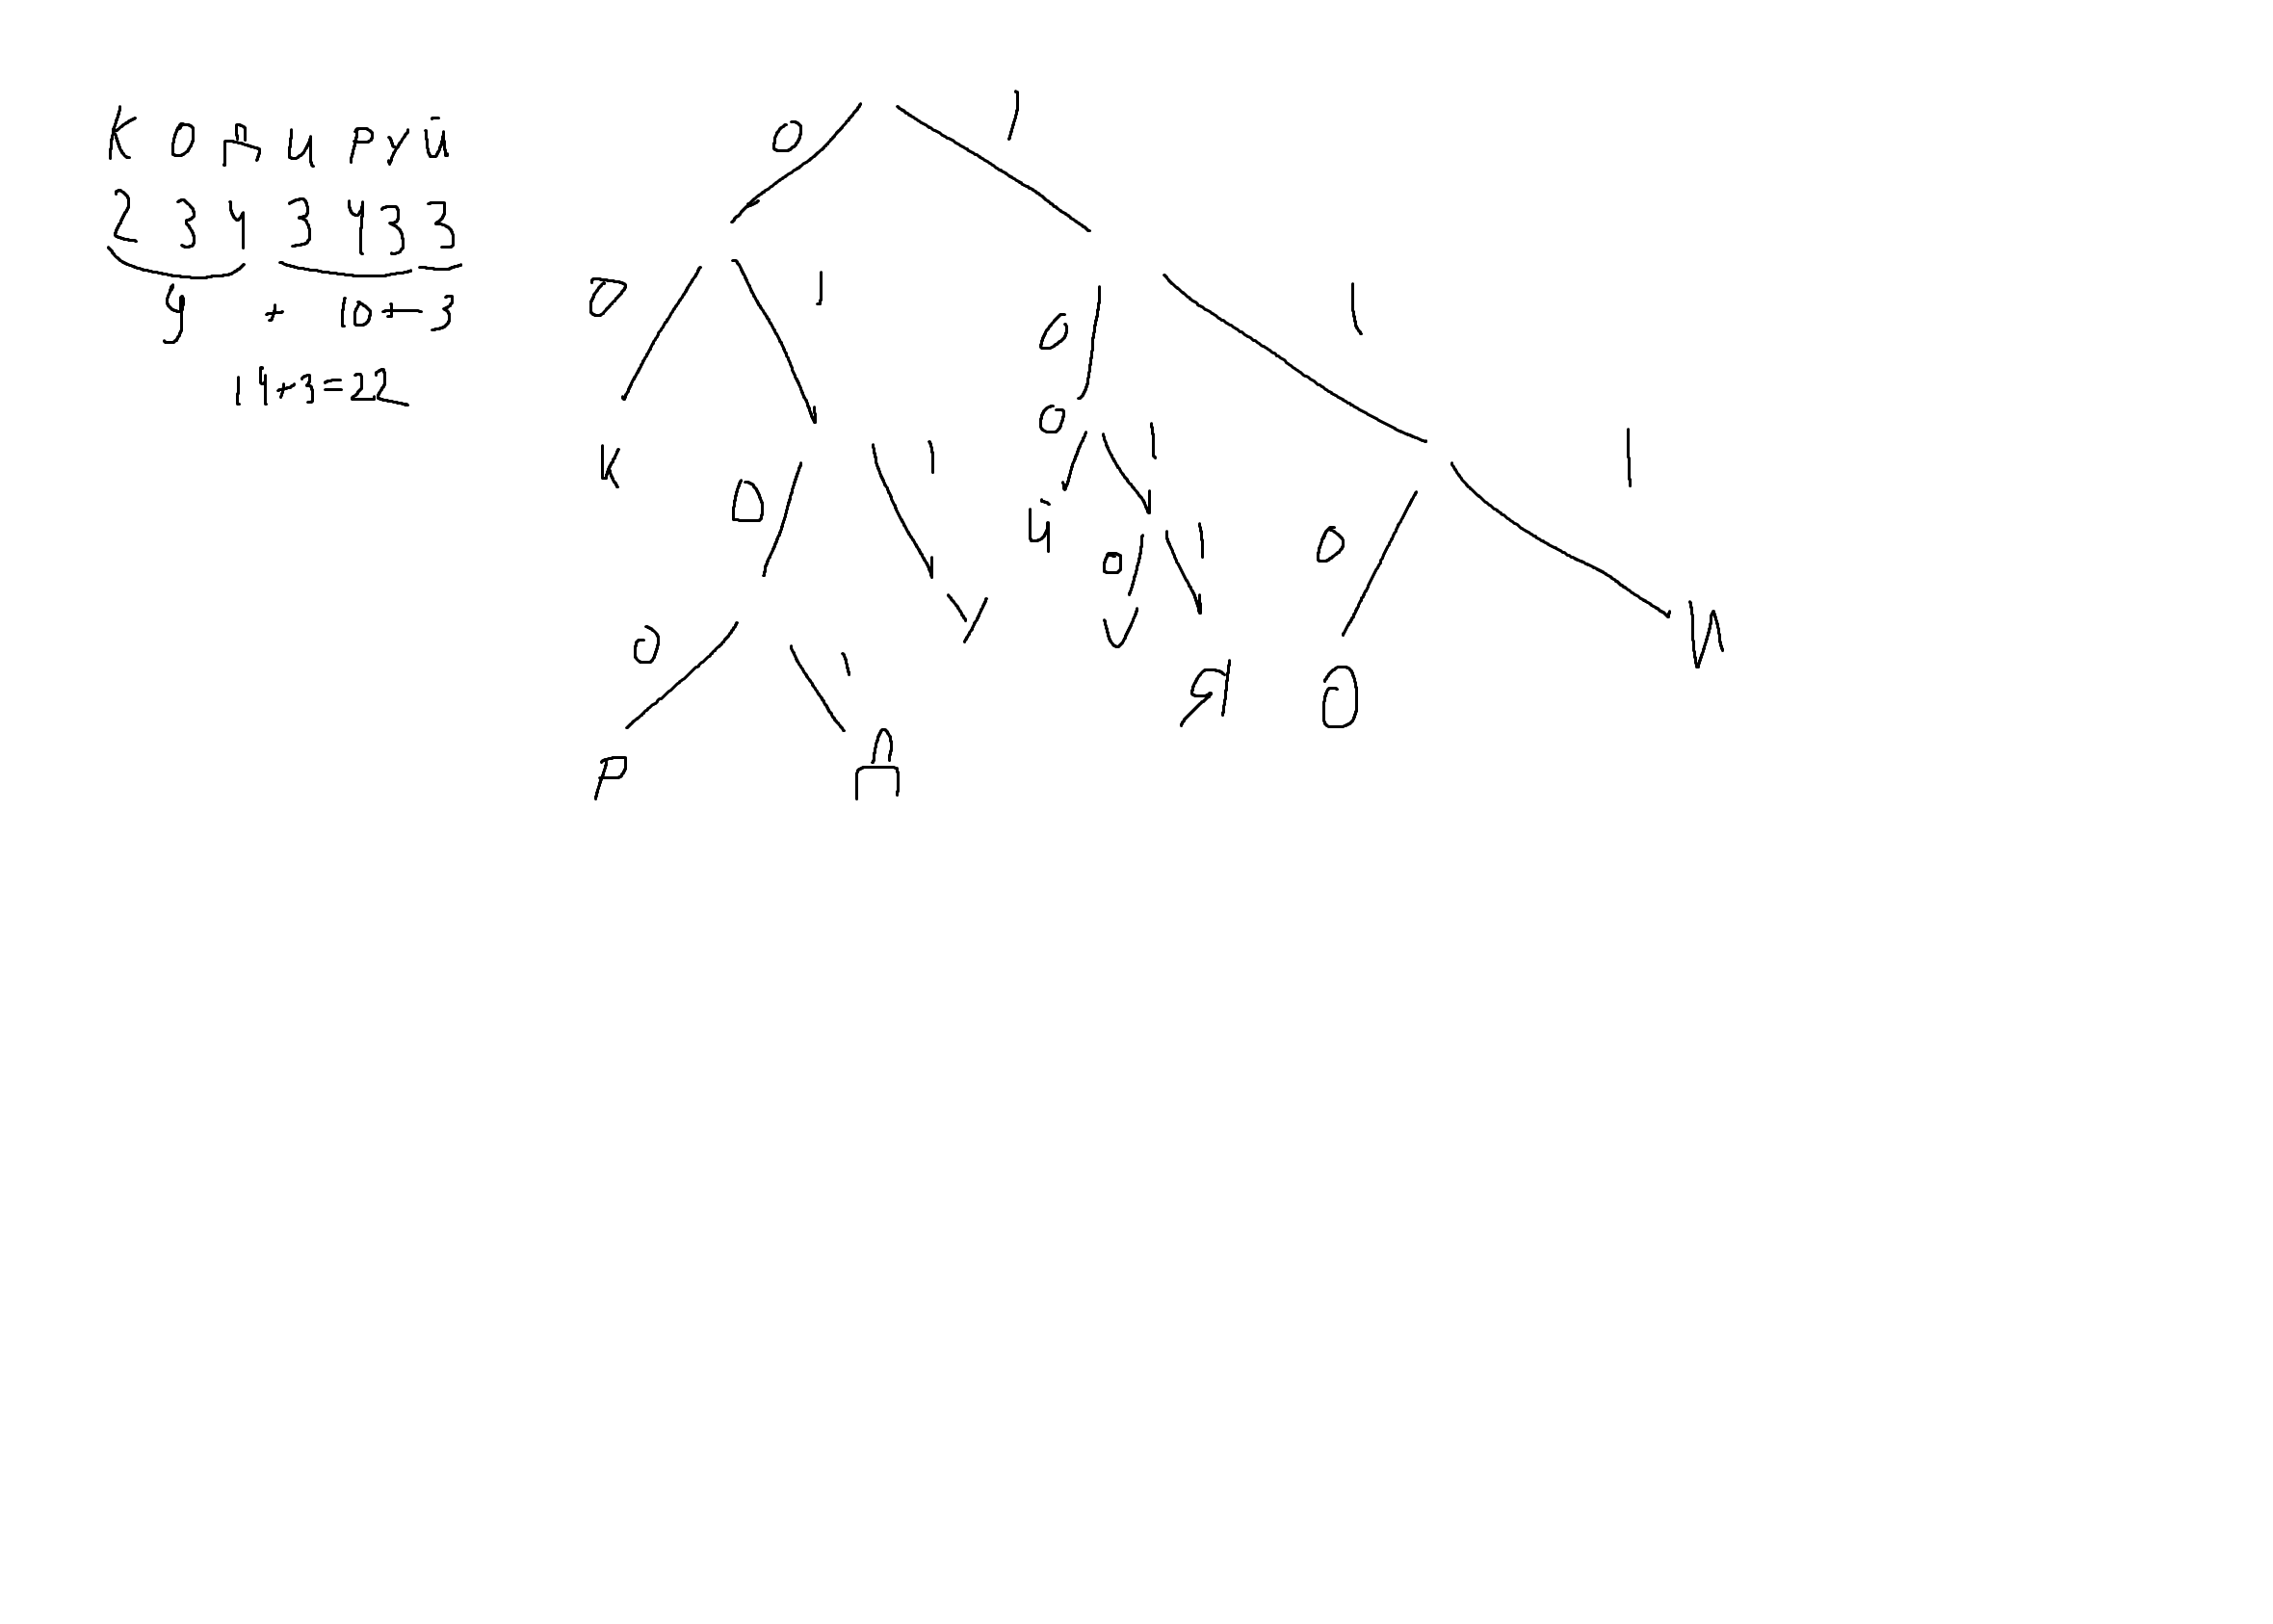 КОДИРУЙ
2343433
9 + 10+3
19+3=22
0 1
0 1 0 1
К 0 1 0 1 0 1
Й 0 1
0 1 У Я О И
Р Д